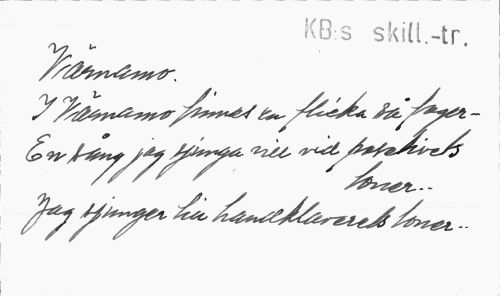 KB:s skill.-tr.
Värnamo.
I Värnamo finnes en flicka så fager-
En sång jag sjunga vill vid positivets
toner..
Jag sjunger till handklaverets toner..